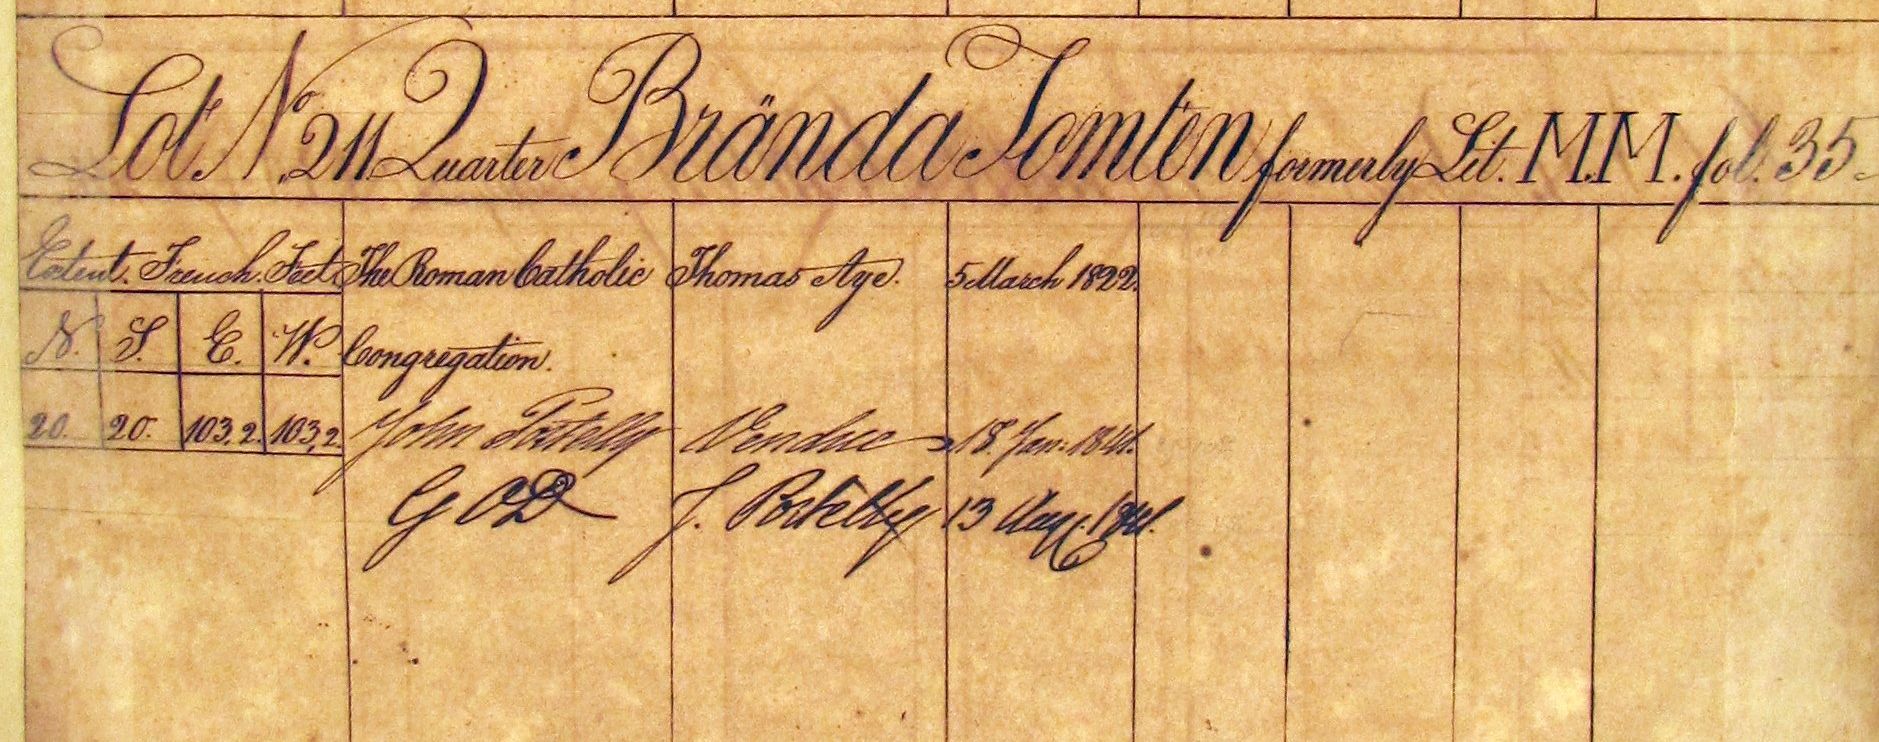 Lot No. 211 Quarter Brända Tomten formerly Lit. M.M. fol. 35
Extent. French. Feet. The Roman Catholic Thomas Aye. 5 March 1822.
N. S. E. W. Congregation.
20. 20. 103,2. 103,2. John Postelly Vendue 18 Jan: 1841.
G J. Postelly 13 Aug. 1841.